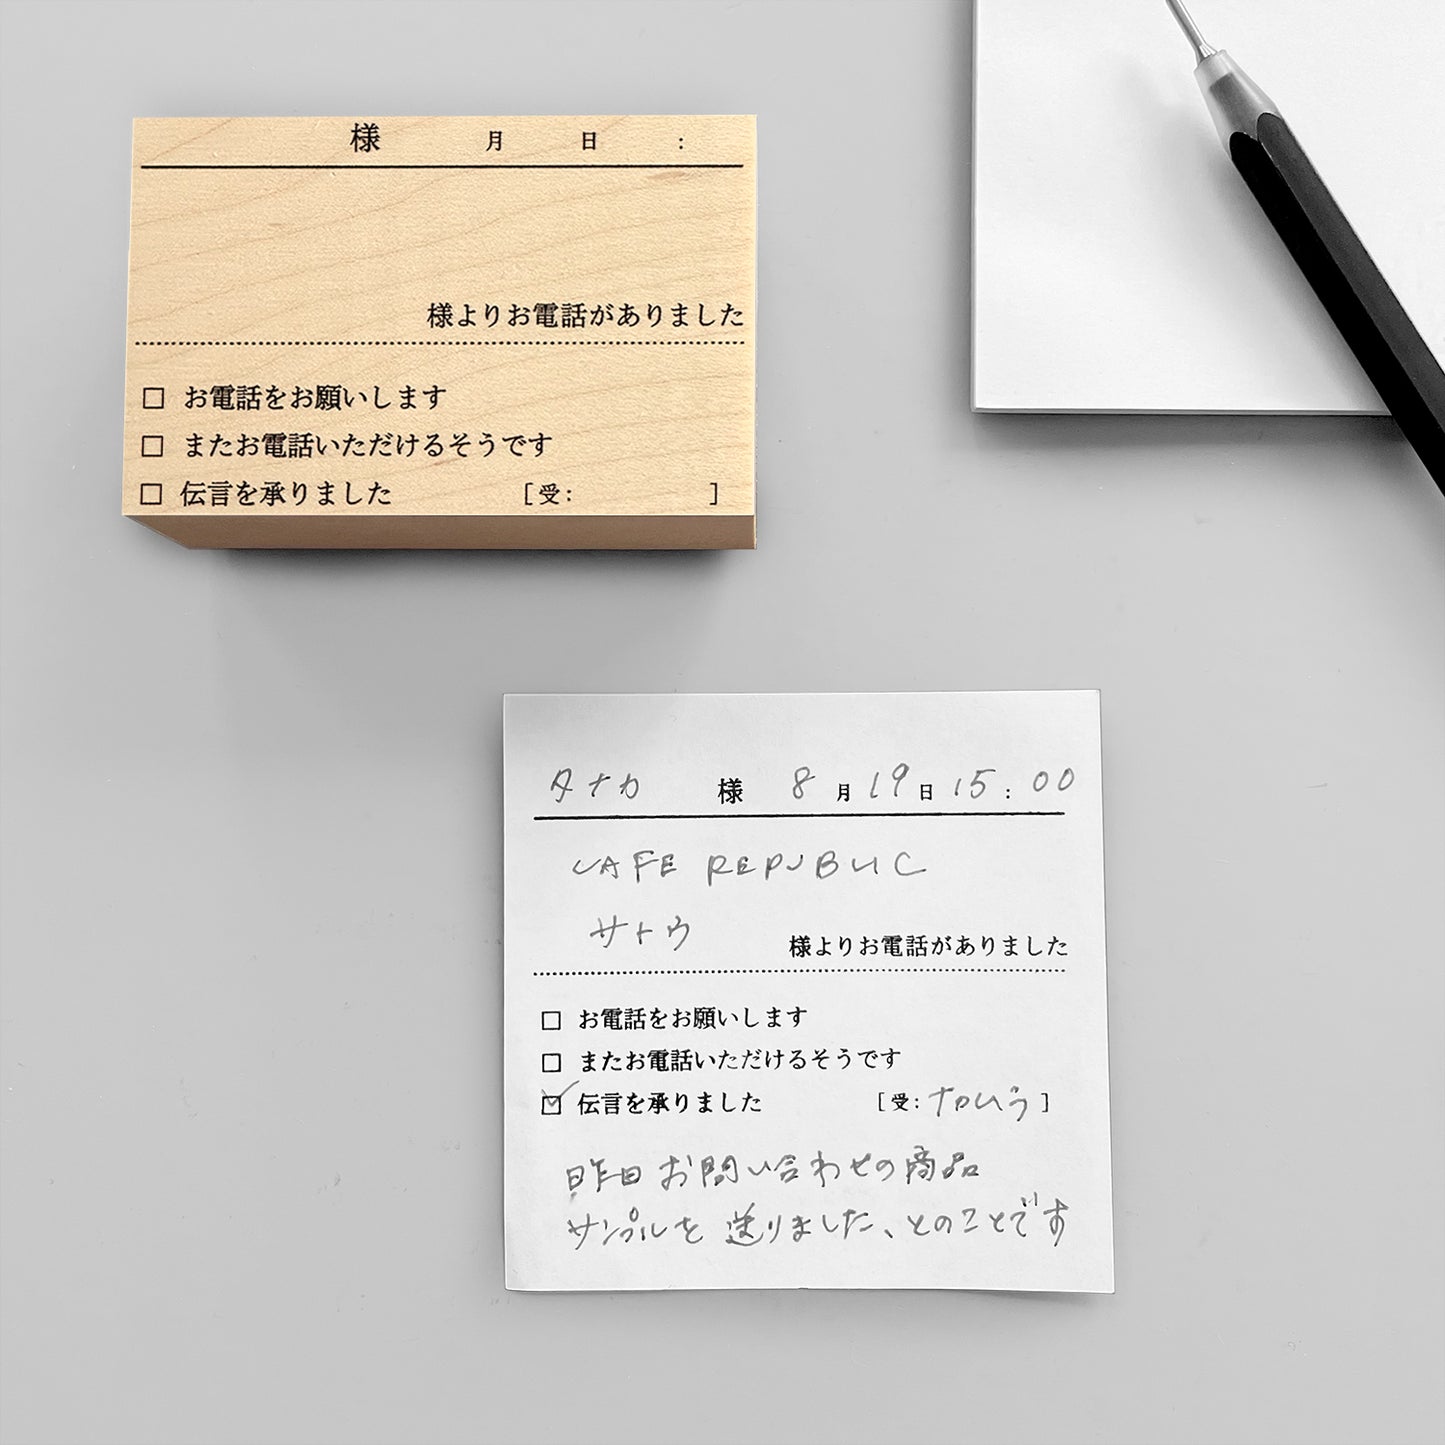 様 月 日 :
様よりお電話がありました
□ お電話をお願いします
□ またお電話いただけるそうです
□ 伝言を承りました [受: ]
タナカ 様 8月19日 15:00
CAFE REPUBLIC
サトウ 様よりお電話がありました
□ お電話をお願いします
□ またお電話いただけるそうです
☑ 伝言を承りました [受: ]
昨日お問い合わせの商品
サンプルを送りました、とのことです